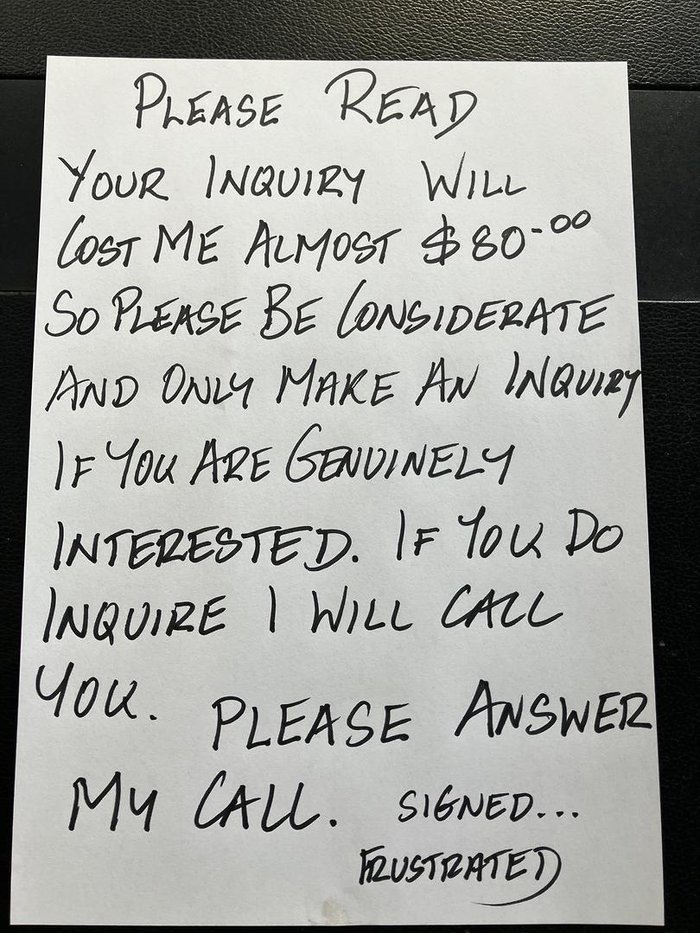 PLEASE READ
YOUR INQUIRY WILL
COST ME ALMOST $80-00
SO PLEASE BE CONSIDERATE
AND ONLY MAKE AN INQUIRY
IF YOU ARE GENUINELY
INTERESTED. IF YOU DO
INQUIRE I WILL CALL
YOU. PLEASE ANSWER
MY CALL. SIGNED...
FRUSTRATED